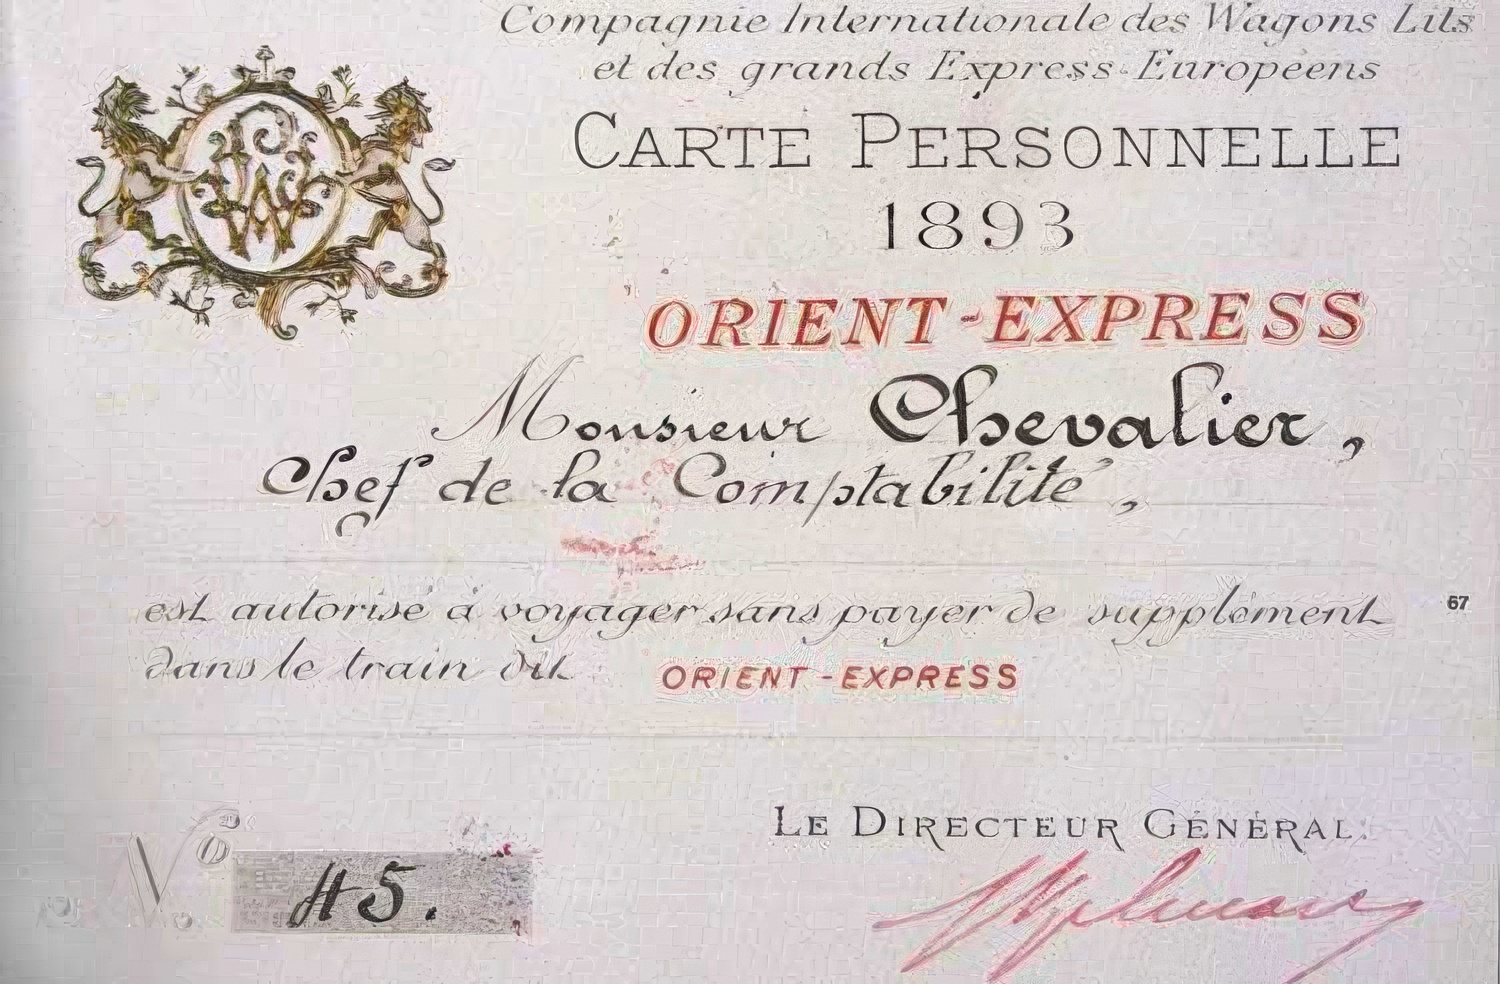 Compagnie Internationale des Wagons Lits
et des grands Express-Européens
CARTE PERSONNELLE
1893
ORIENT-EXPRESS
Monsieur Chevalier,
Chef de la Comptabilité,
est autorisé à voyager sans payer de supplément
dans le train dit ORIENT-EXPRESS
67
LE DIRECTEUR GÉNÉRAL.
No 45.